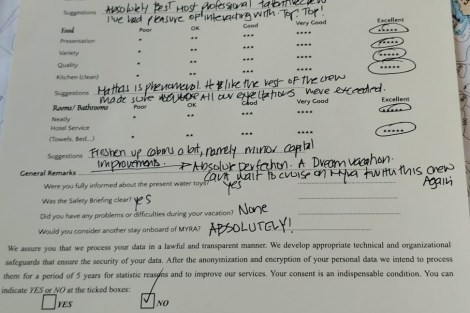 Suggestions Absolutely Best most professional talented crew
I've had pleasure of interacting with. Top Top!
Food Poor OK Good Very Good Excellent
Presentation * ** *** **** *****
Variety * ** *** **** *****
Quality * ** *** **** *****
Kitchen (clean) * ** *** **** *****
Suggestions is phenomenal. He like the rest of the crew
made sure all our expectations were exceeded.
Rooms/ Bathrooms Poor OK Good Very Good Excellent
Neatly * ** *** **** *****
Hotel Service
(Towels, Bed...) * ** *** **** *****
Suggestions Freshen up cabins a bit, namely minor capital
improvements. Absolute Perfection. A Dream vacation.
General Remarks Can't wait to cruise on Myra with this crew
Again
Were you fully informed about the present water toys? yes
Was the Safety Briefing clear? yes
Did you have any problems or difficulties during your vacation? None
Would you consider another stay onboard of MYRA? ABSOLUTELY!
We assure you that we process your data in a lawful and transparent manner. We develop appropriate technical and organizational
safeguards that ensure the security of your data. After the anonymization and encryption of your personal data we intend to process
them for a period of 5 years for statistic reasons and to improve our services. Your consent is an indispensable condition. You can
indicate YES or NO at the ticked boxes:
YES NO